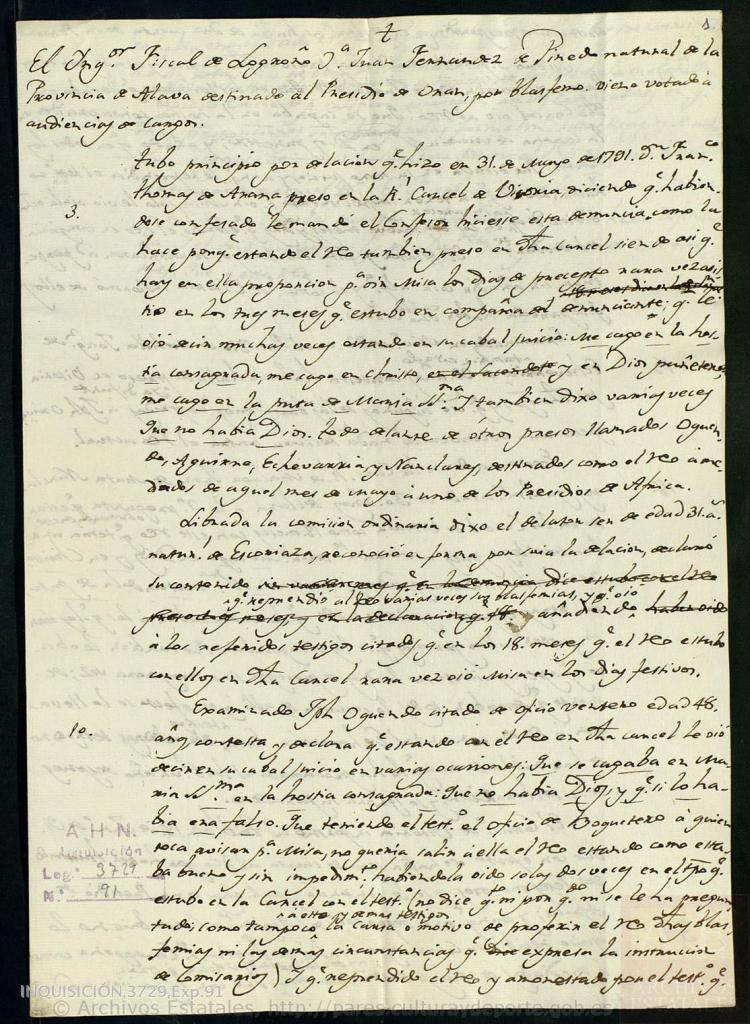 1.
+
El Ynq.or Fiscal de Logroño Jª Juan Fernandez de Pinedo natural de la
Provincia de Alava destinado al Presidio de Oran, por blasfemo. viene votado a
audiencias de cargos.
tubo principio por delacion q.e hizo en 31. de Mayo de 1791. d.n Fran.co
thomas de Anama preso en la R.l Carcel de Vitoria, diciendo q.e habien-
3.
dose confesado le mandó el Confesor hiciese esta denuncia, como la
hace porq.e estando el reo tambien preso en dha carcel siendo asi q.e
hay en ella proporcion p.a oir Misa los dias de precepto rara vez asis-
tio en los mes meses q.e estubo en compañia del denunciante; q.e le
oió decir muchas veces estando en su cabal juicio: Me cago en la hos-
tia consagrada, me cago en Christo, en el Sacerdote y en Dios puñetero,
me cago en la puta de Maria SS.ma Y tambien dixo varias veces
Que no habia Dios. todo delante de otros presos llamados Oguen-
do, Aguirre, Echevarria, y Nanclares, destinados como el reo à me-
diados de aquel mes de Mayo à uno de los Presidios de Africa.
Librada la comision ordinaria dixo el delator ser de edad 31. a.s
natur.l de Escoriaza, reconoció en forma por suia la delacion, declaró
su contenido
q.e reprendió al reo varias veces sus blasfemias, y q.e oió
añadiendo haber oido
à los referidos testigos citados q.e en los 18. meses q.e el reo estubo
con ellos en dha Carcel rara vez oió Misa en los dias festivos.
Examinado Jph Oguendo citado de oficio ventero edad 48.
10.
años, contesta y declara q.e estando con el reo en dha carcel le oió
decir en su cabal juicio en varias ocasiones: Que se cagaba en Ma-
ria SS.ma en la hostia consagrada: Que no habia Dios, y q.e si lo ha-
bia era falso. Que teniendo el test.o el oficio de Boquetero à quien
toca avisar p.a Misa, no queria salir à ella el reo estando como esta-
ba bueno y sin impedim.to habiendola oido solas dos veces en el tpo q.e
estubo en la Carcel con el test.o (no dice q.to ni por q.do ni se le ha pregun-
à este y demas testigos
tado; como tampoco la causa o motivo de proferir el reo dhas blas-
femias ni las demas circunstancias q.e expresa la instruccion
de Comisarios) Y q.e reprendido el reo y amonestado por el test.o q.e
A H N.
Inquisición
Leg.o 3729
N.o 91
INQUISICIÓN,3729,Exp.91
© Archivos Estatales, http://pares.culturaydeporte.gob.es